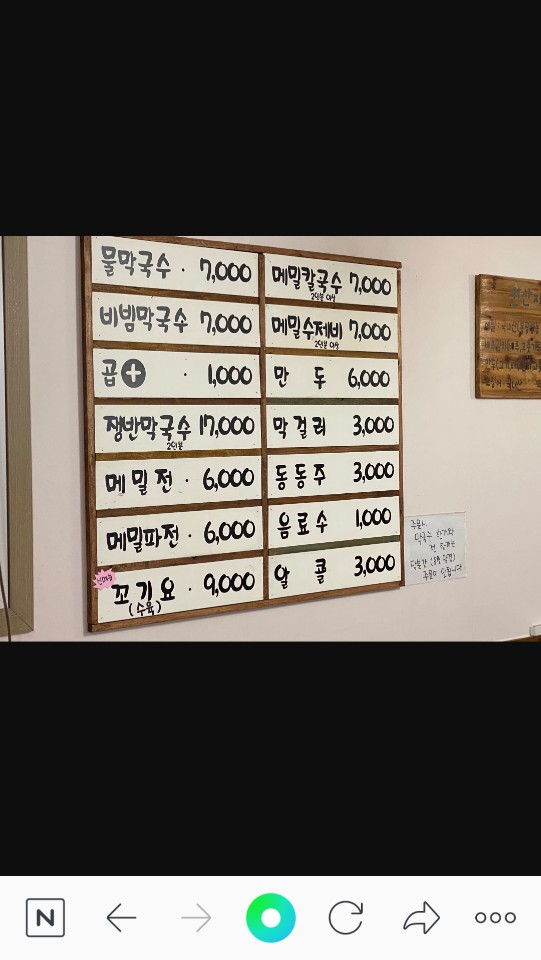 물막국수 · 7,000
비빔막국수 7,000
곱+ · 1,000
쟁반막국수 17,000
2인분
메밀전 · 6,000
메밀파전 · 6,000
꼬기요 · 9,000
(수육)
메밀칼국수 7,000
2인분 이상
메밀수제비 7,000
2인분 이상
만두 6,000
막걸리 3,000
동동주 3,000
음료수 1,000
알콜 3,000
주문시
막국수 한가지와
전
당분간
주문이 안됩니다
N